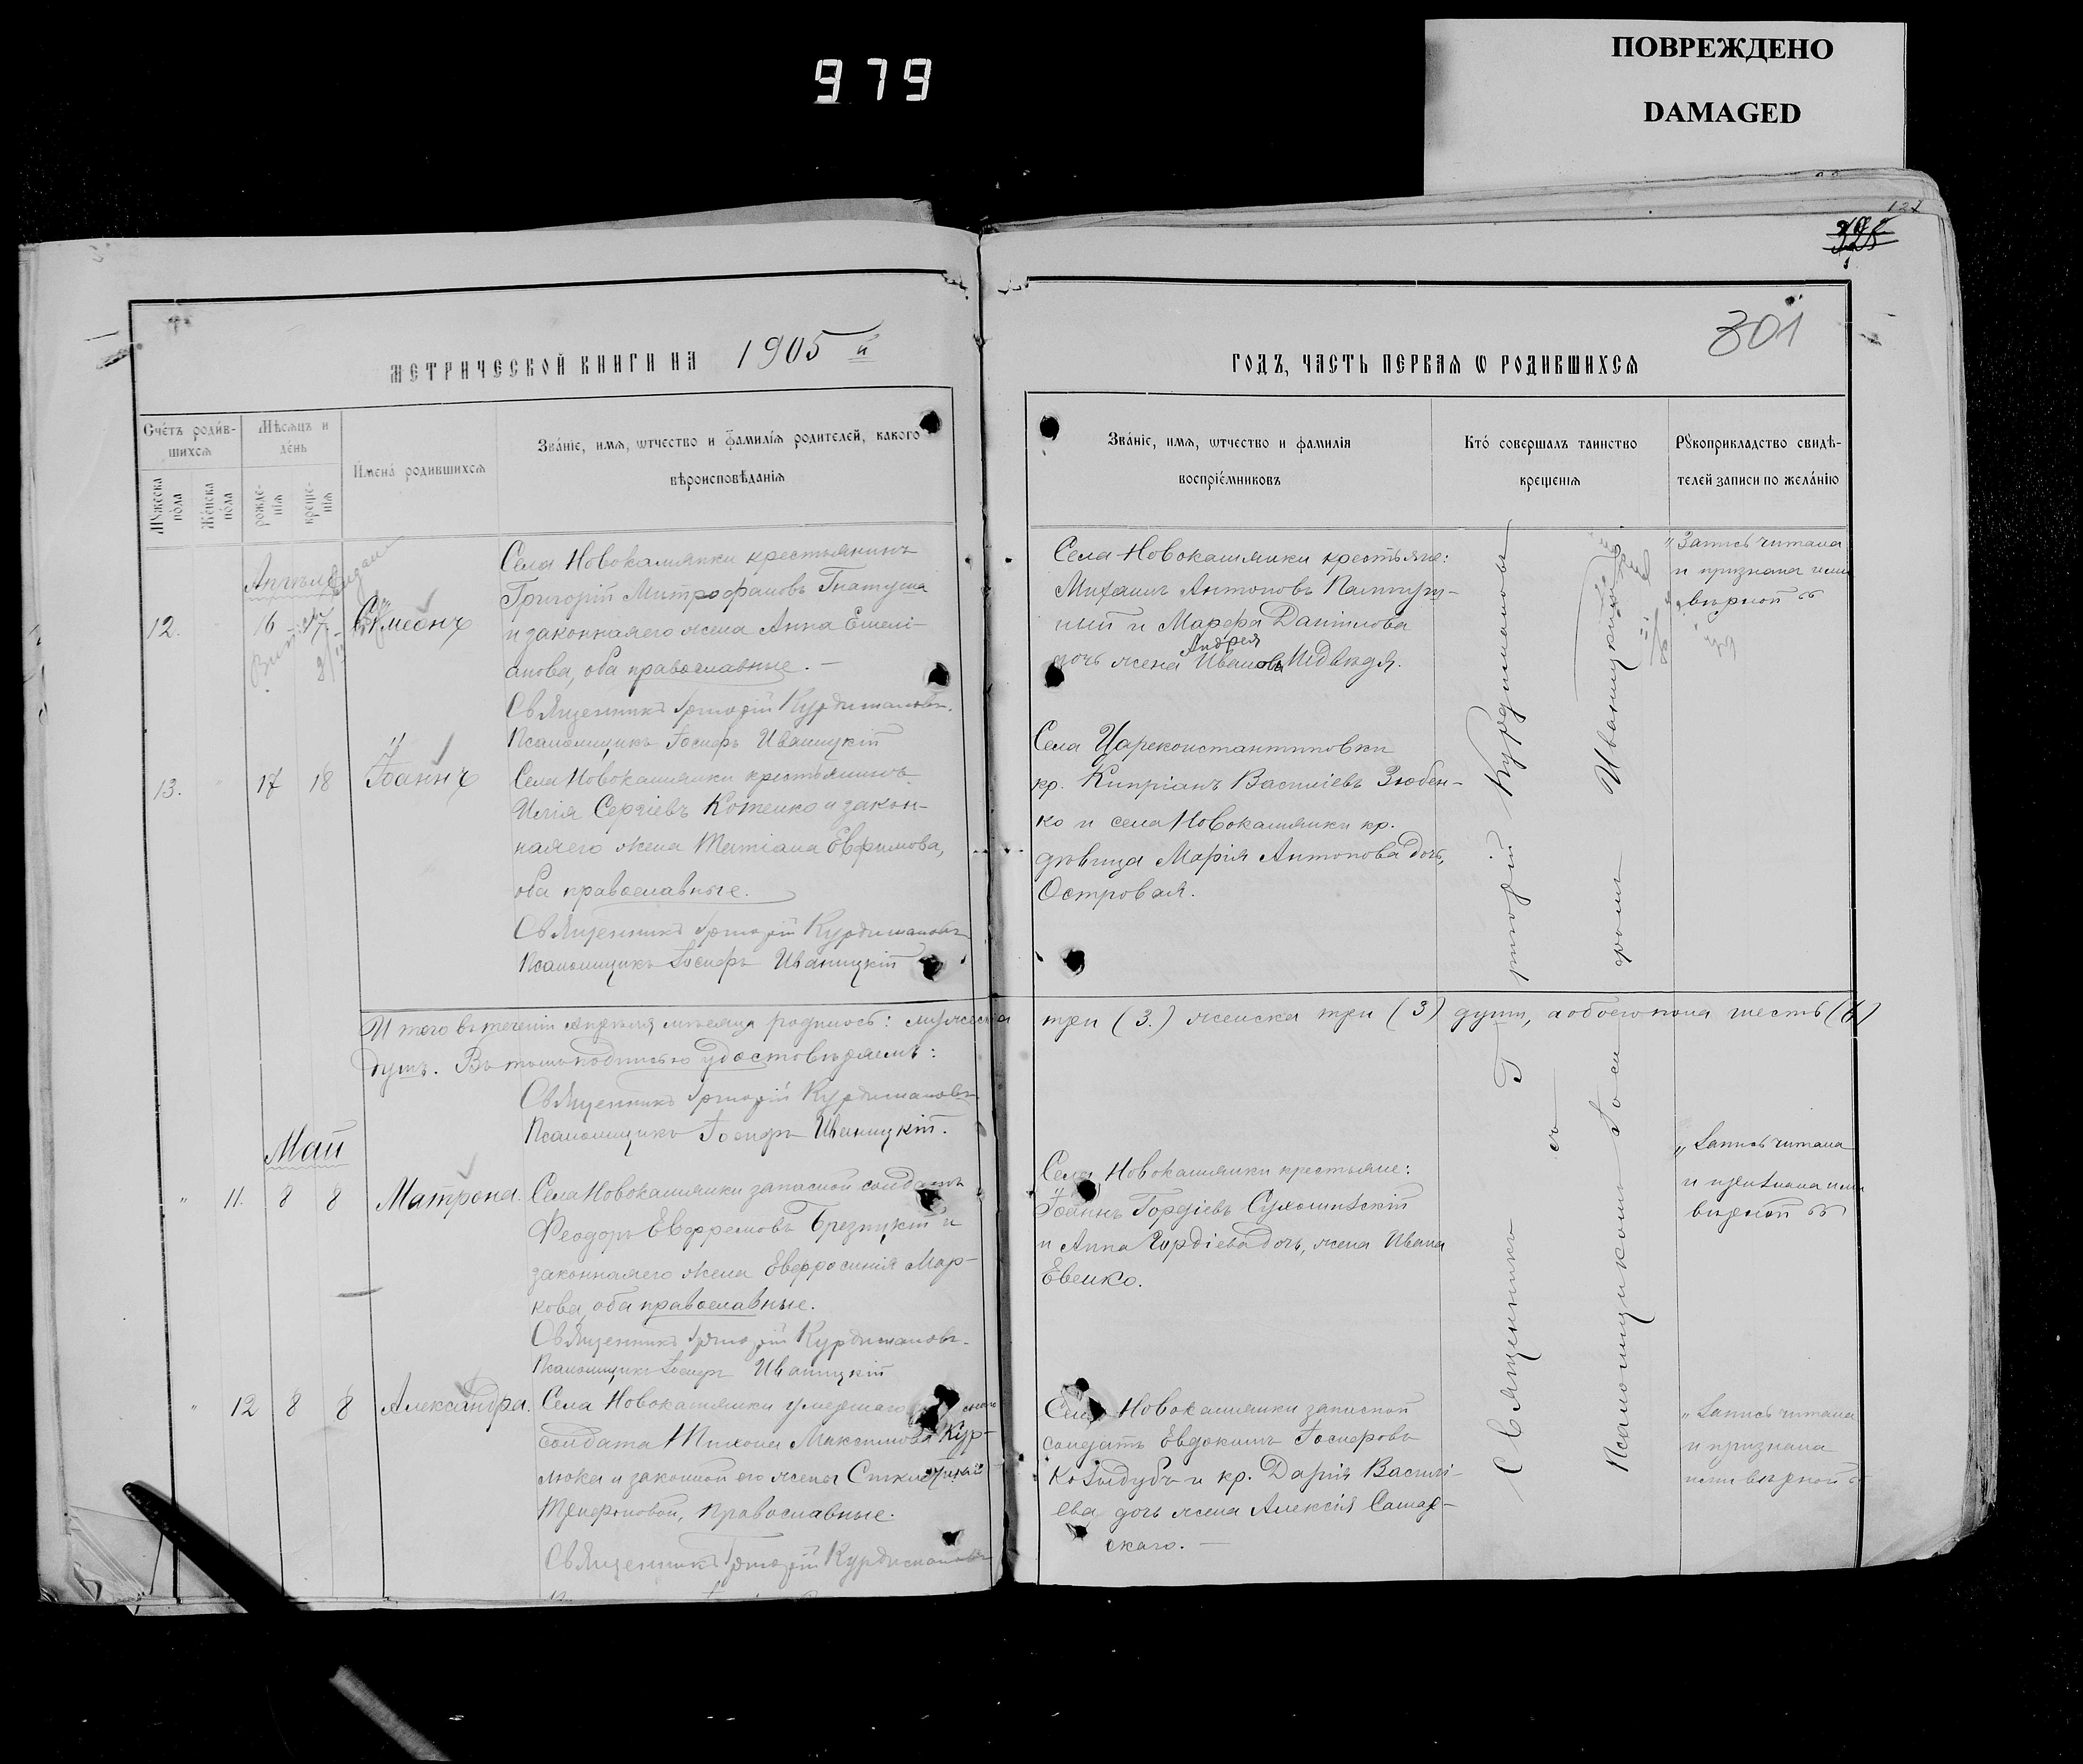 979
ПОВРЕЖДЕНО
DAMAGED
122
301
МЕТРИЧЕСКОЙ КНИГИ НА 1905 й
ГОДЪ, ЧАСТЬ ПЕРВАЯ Ѡ РОДИВШИХСЯ
Счéтъ родúв-
шихся
Мѣсяцъ и
дéнь
Мꙋжеска
пóла
Жéнска
пóла
рождé-
нія
крещé-
нія
Имена́ родившихся
Зва́нiе, имя, ѡтчество и фамилія родителей, какого
вѣроисповѣданія
Зва́нiе, имя, ѡтчество и фамилія
воспрiéмниковъ
Кто́ совершалъ таинство
крещенія
Рꙋкоприкладство свидѣ-
телей записи по жела́нію
Апрѣль
12. 16 17 Сѵмеонъ
Села Новокамянки крестьянинъ
Григорій Митрофановъ Гнатуша
и законная его жена Анна Емелі-
анова, оба православные. —
Священникъ Григорій Курдимановъ.
Псаломщикъ Іосифъ Иваницкій
Села Новокамянки крестьяне:
Михаилъ Антоновъ
ный и Марфа Даніилова
Андрея
дочь жена Иванова
"Запись читана
и признана ими
вѣрной
13. 17 18 Іоаннъ
Села Новокамянки крестьянинъ
Илія Сергіевъ Котенко и закон-
ная его жена Татіана Евфимова,
оба православные.
Священникъ Григорій Курдимановъ
Псаломщикъ Іосифъ Иваницкій
Села Цареконстантиновки
кр. Кипріанъ Василіевъ Зюбен-
ко и села Новокамянки кр.
дѣвица Марія Антонова дочь,
Островая.
Итого въ теченіи Апрѣля мѣсяца родилось: мужеска три (3.) женска три (3) души, а обоего пола шесть (6)
душъ. Въ томъ подписью удостовѣряемъ:
Священникъ Григорій Курдимановъ
Псаломщикъ Іосифъ Иваницкій.
Май
" 11. 8 8 Матрона.
Села Новокамянки запасной солдатъ
Феодоръ Евфремовъ Брезицкій и
законная его жена Евфросинія Мар-
кова, оба православные.
Священникъ Григорій Курдимановъ.
Псаломщикъ Іосифъ Иваницкій
Села Новокамянки крестьяне:
Іоаннъ Гордіевъ
и Анна Гордіева дочь, жена Ивана
Евенко.
"Запись читана
и признана ими
вѣрной
" 12 8 8 Александра.
Села Новокамянки умершаго
солдата Тихона Максимова Кур-
люка и законной его жены
Трифоновой, Православные.
Священникъ Григорій Курдимановъ
Села Новокамянки запасной
солдатъ Евдокимъ Іосифовъ
Козидубъ и кр. Дарія Василі-
ева дочь жена Алексія Самар-
скаго. —
"Запись читана
и признана
ими вѣрной
Священникъ Григорій Курдимановъ съ
Псаломщикомъ Іосифомъ Иваницкимъ